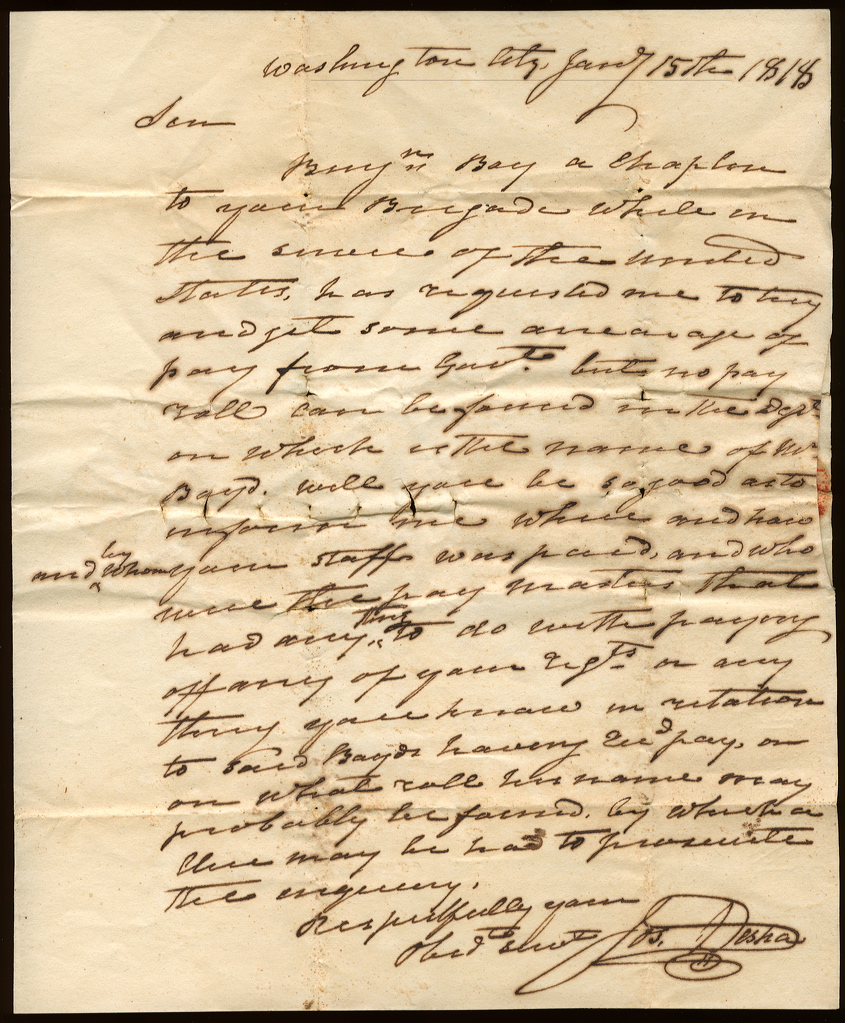 Washington City Jany 15th 1818
Sir
Benjn Boyd a Chaplon
to your Brigade while in
the service of the United
States, has requested me to try
and get some arearage of
pay from Govt. but no pay
roll can be found in the Dept
on which is the name of Mr
Boyd. will you be so good as to
inform me where and how
and by whom your staff was paid, and who
were the pay masters that
had any thing to do with paying
off any of your Regts or any
thing you know in relation
to said Boyds having Recd pay, or
on what roll his name may
probably be found. by which a
clue may be had to prosecute
the enquiry.
Respectfully your
Obedt. servt Jos. Desha